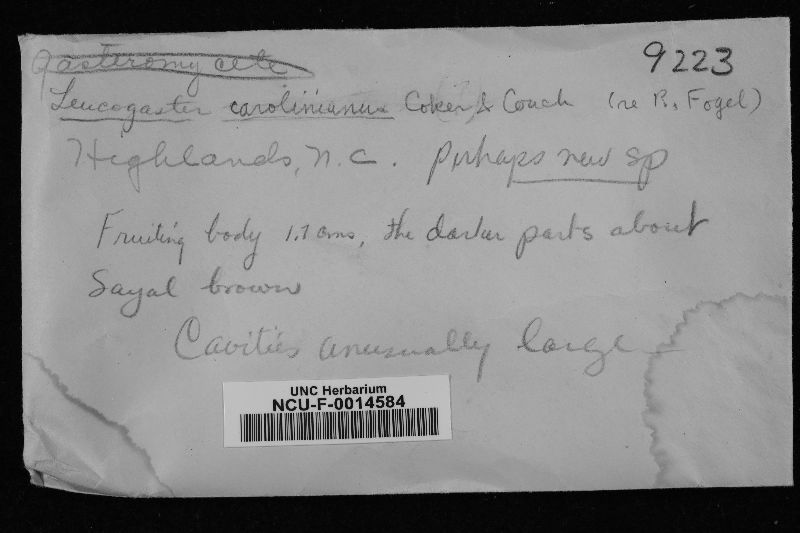 Gasteromycete
9223
Leucogaster carolinianus Coker & Couch (re R. Fogel)
Highlands, N.C. Perhaps new sp
Fruiting body 1.7 cms, the darker parts about
Sayal brown
Cavities unusually large
UNC Herbarium
NCU-F-0014584